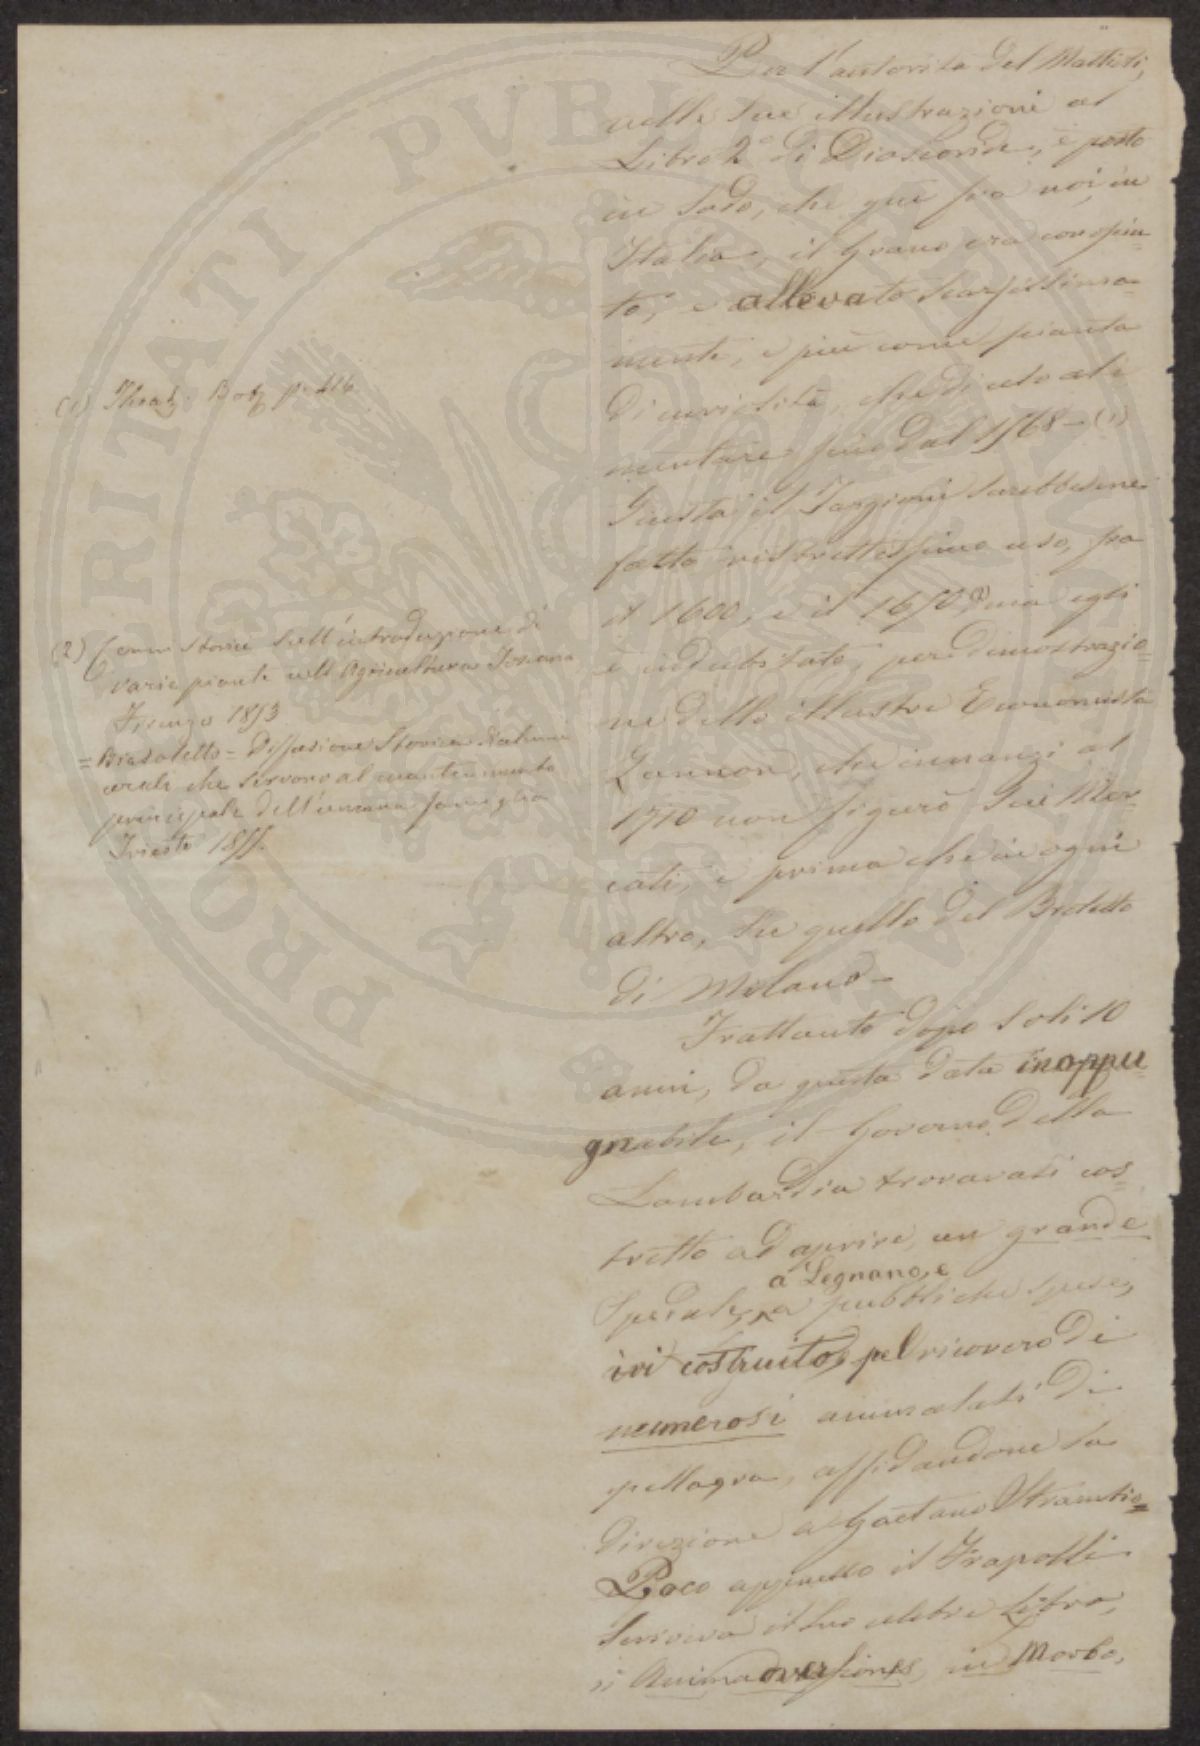 Per l'autorità del Mattioli,
nelle sue illustrazioni al
Libro 2º di Dioscoride, è posto
in sodo, che qui fra noi, in
Italia, il Grano era conosciu=
to, e allevato scarsissima=
mente, e più come pianta
di curiosità, che di uso ali
mentare fino dal 1568 – (1)
Giusta il Targioni sarebbesene
fatto ristrettissimo uso, fra
il 1600, e il 1650, (2) ma egli
è indubitato, per dimostrazio=
ne dello illustre Economista
che innanzi al
1710 non figurò sui Mer=
cati, e prima che in ogni
altro, su quello del Broletto
di Milano –
Frattanto dopo soli 10
anni, da questa data inoppu=
gnabile, il Governo della
Lombardia trovavasi cos=
tretto ad aprire, un grande
a Legnano, e
Spedale, a pubbliche spese,
ivi costruito, pel ricovero di
numerosi ammalati di
pellagra, affidandone la
direzione a Gaetano Strambio=
Poco appresso il Frapolli
scriveva il suo celebre libro,
" Animadversiones, in Morbo,
(1) p. 416
(2) Cenni storici sull'introduzione di
varie piante nell'Agricoltura Toscana
Firenze 1853
= Biasoletto = Dissesione Storica
cereali che servono al mantenimento
principale dell'umana famiglia
Trieste 1855.
PROSPERITATI PVBLICAE AVGENDAE